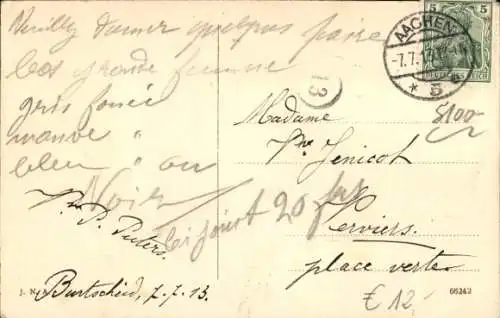 Veuillez donner quelques paire
bas grande femme
gris foncé
mauve "
bleu " ou
Noir
ci joint 20 frs
Burtscheid, 7.7.13.
13
AACHEN
-7.7.
* 5 e
5 5
DEUTSCHES REICH
5100
Madame
Jenicot
Verviers.
place verte.
€ 12,-
66242